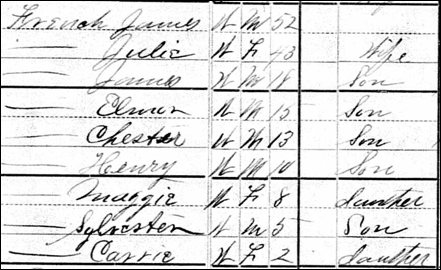 French James W M 52
Julie W F 43 Wife
James W M 18 Son
Elmer W M 15 Son
Chester W M 13 Son
Henry W M 10 Son
Maggie W F 8 Dauther
Sylvester W M 5 Son
Carrie W F 2 Dauther